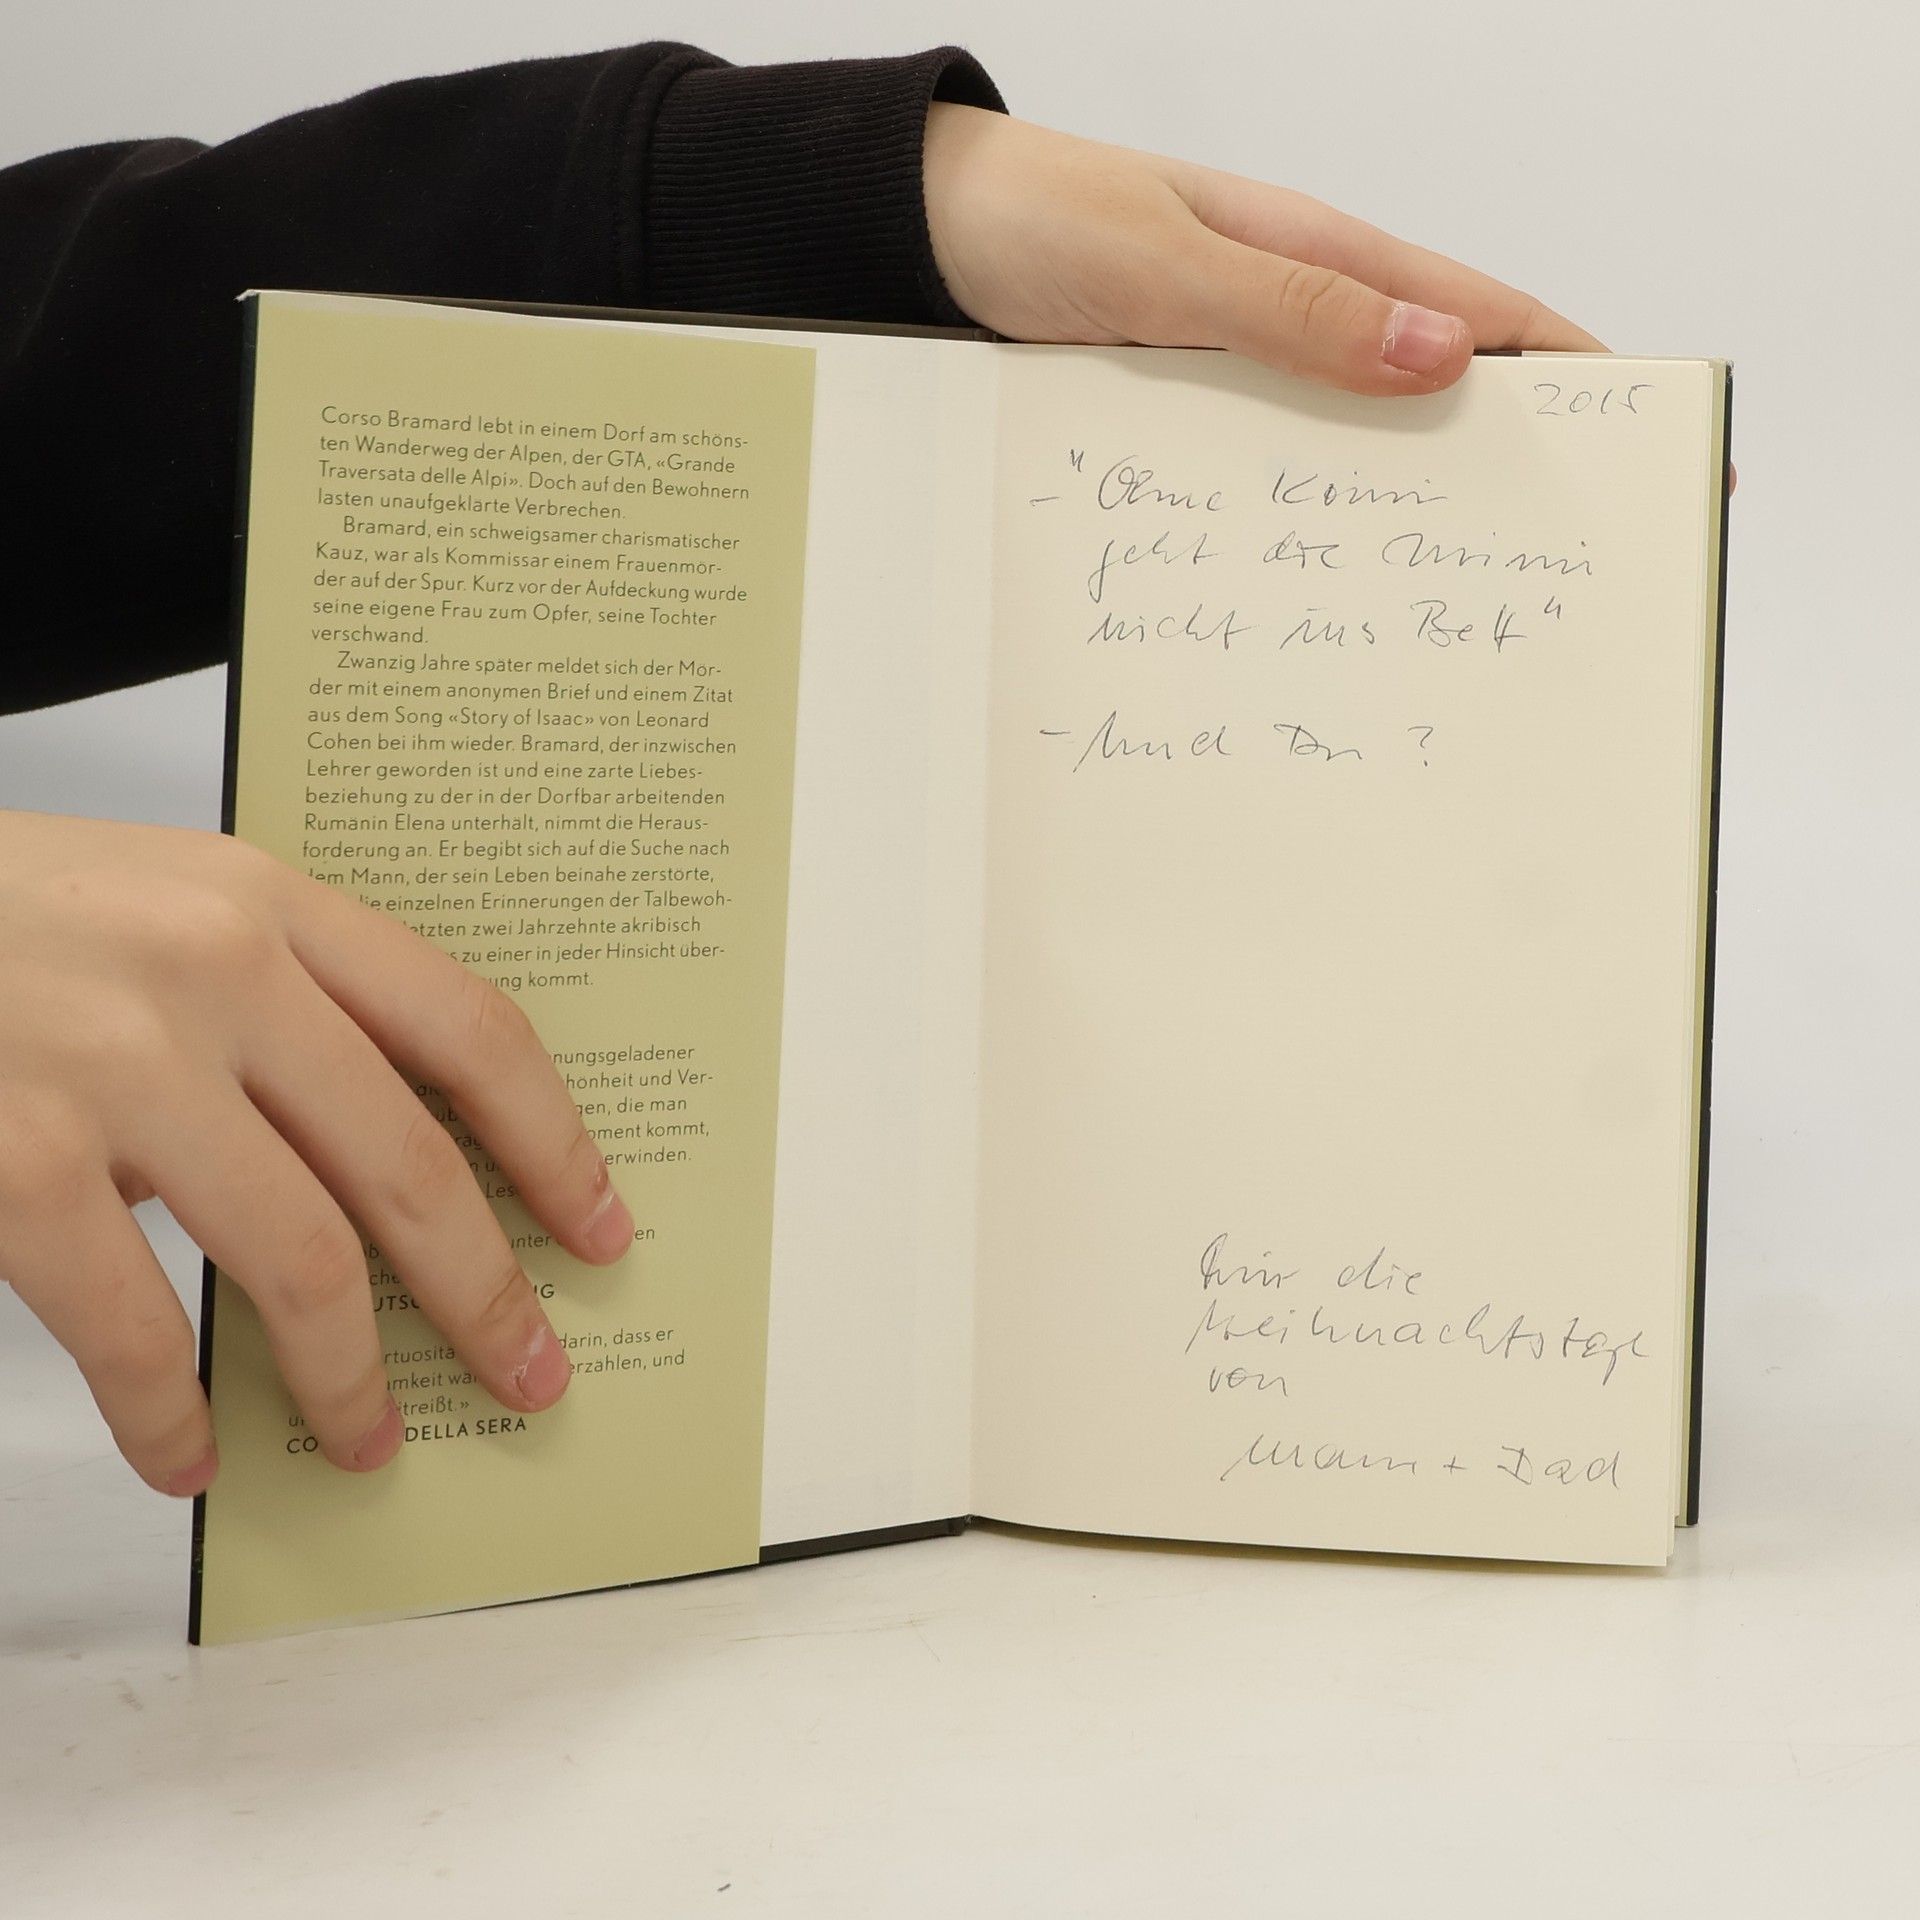 Corso Bramard lebt in einem Dorf am schöns-
ten Wanderweg der Alpen, der GTA, «Grande
Traversata delle Alpi». Doch auf den Bewohnern
lasten unaufgeklärte Verbrechen.
Bramard, ein schweigsamer charismatischer
Kauz, war als Kommissar einem Frauenmör-
der auf der Spur. Kurz vor der Aufdeckung wurde
seine eigene Frau zum Opfer, seine Tochter
verschwand.
Zwanzig Jahre später meldet sich der Mör-
der mit einem anonymen Brief und einem Zitat
aus dem Song «Story of Isaac» von Leonard
Cohen bei ihm wieder. Bramard, der inzwischen
Lehrer geworden ist und eine zarte Liebes-
beziehung zu der in der Dorfbar arbeitenden
Rumänin Elena unterhält, nimmt die Heraus-
forderung an. Er begibt sich auf die Suche nach
dem Mann, der sein Leben beinahe zerstörte,
einzelnen Erinnerungen der Talbewoh-
zwei Jahrzehnte akribisch
zu einer in jeder Hinsicht über-
kommt.
nungsgeladener
hönheit und Ver-
gen, die man
oment kommt,
erwinden.
darin, dass er
erzählen, und
itreißt.»
DELLA SERA
2015
- "Ohne Krimi
geht die Mimi
nicht ins Bett"
- Und Du?
Für die
Weihnachtstage
von
Mam + Dad